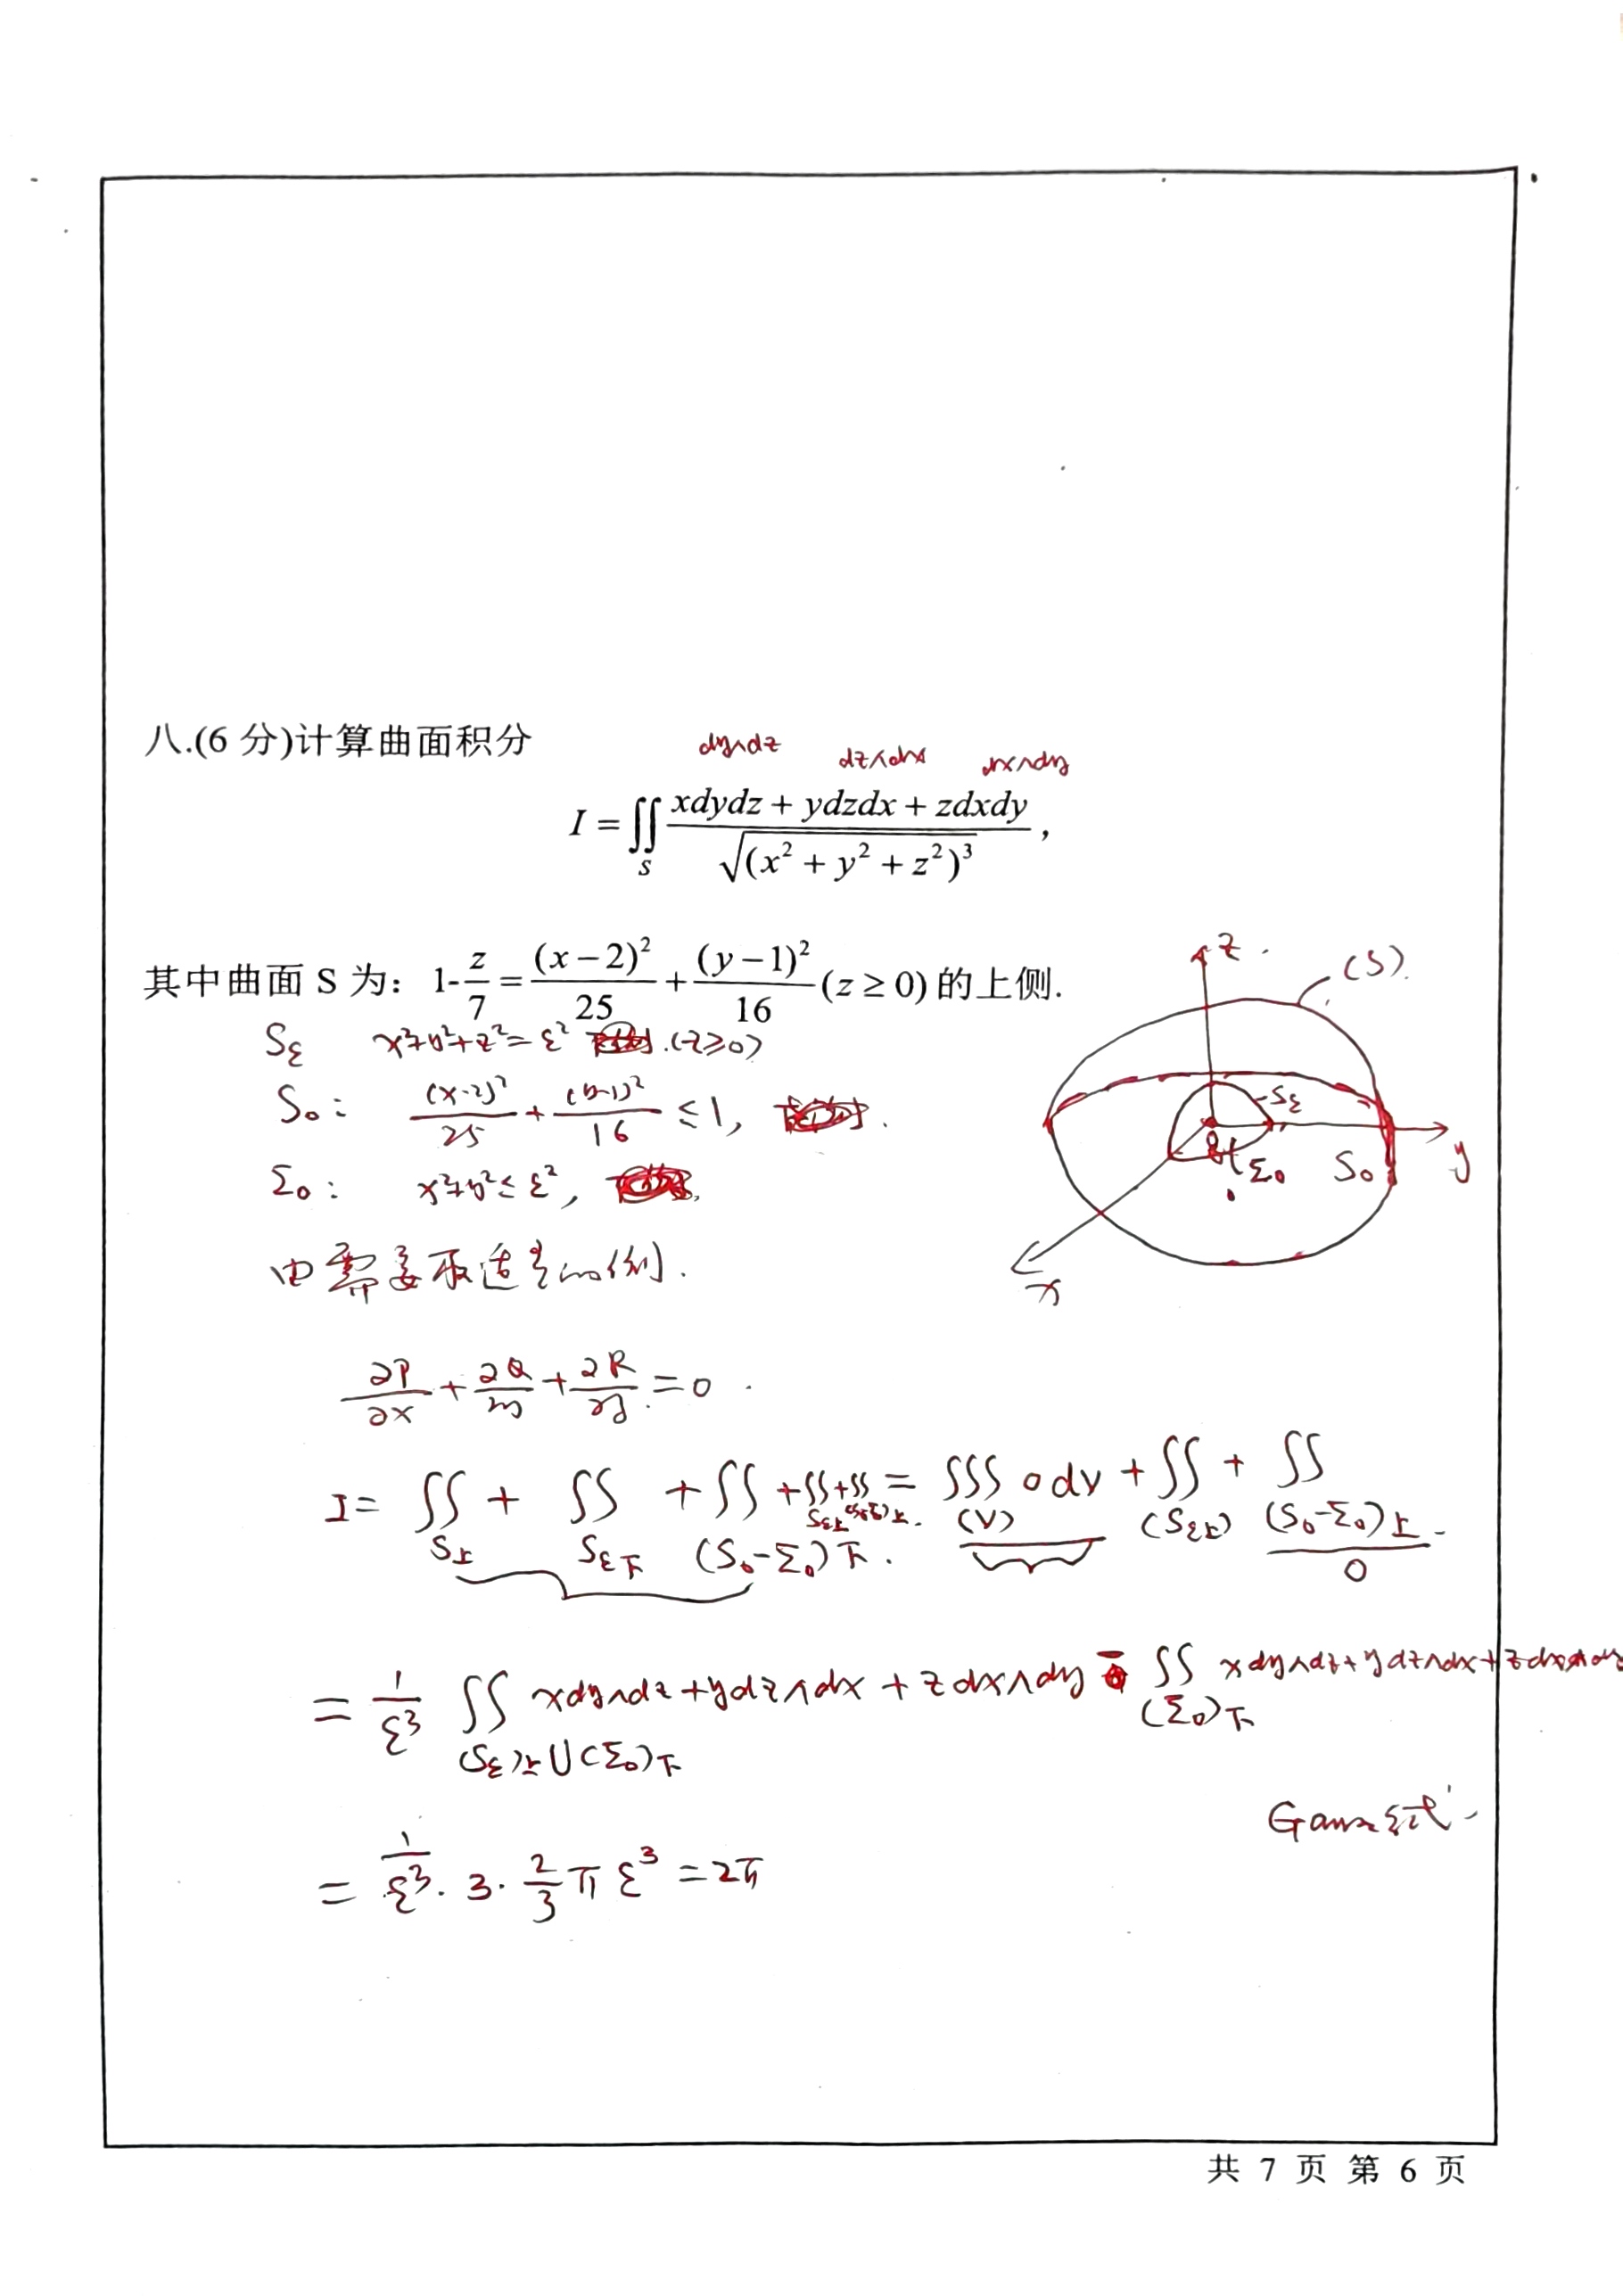 八.(6 分)计算曲面积分
dy∧dz dz∧dx dx∧dy
I = ∬_S (xdydz + ydzdx + zdxdy) / √((x² + y² + z²)³) ,
其中曲面 S 为：1-z/7 = (x−2)²/25 + (y−1)²/16 (z ≥ 0) 的上侧.
S_ε x²+y²+z²=ε² (z≥0)
S₀: (x-2)²/25 + (y-1)²/16 ≤ 1,
Σ₀: x²+y² ≤ ε²,
由需要取适当的侧.
z (S) S_ε Σ₀ S₀ y x
∂P/∂x + ∂Q/∂y + ∂R/∂z = 0
I = ∬_{S上} + ∬_{S_ε下} + ∬_{(S₀-Σ₀)下} + ∬_{S_ε上} + ∬_{(S₀-Σ₀)上} = ∭_{(V)} 0 dV + ∬_{(S_ε上)} + ∬_{(S₀-Σ₀)上}
0
= 1/ε³ ∬_{(S_ε)上∪(Σ₀)下} xdy∧dz + ydz∧dx + zdx∧dy - ∬_{(Σ₀)下} xdy∧dz + ydz∧dx + zdx∧dy
Gauss公式
= 1/ε³ · 3 · 2/3 π ε³ = 2π
共 7 页 第 6 页